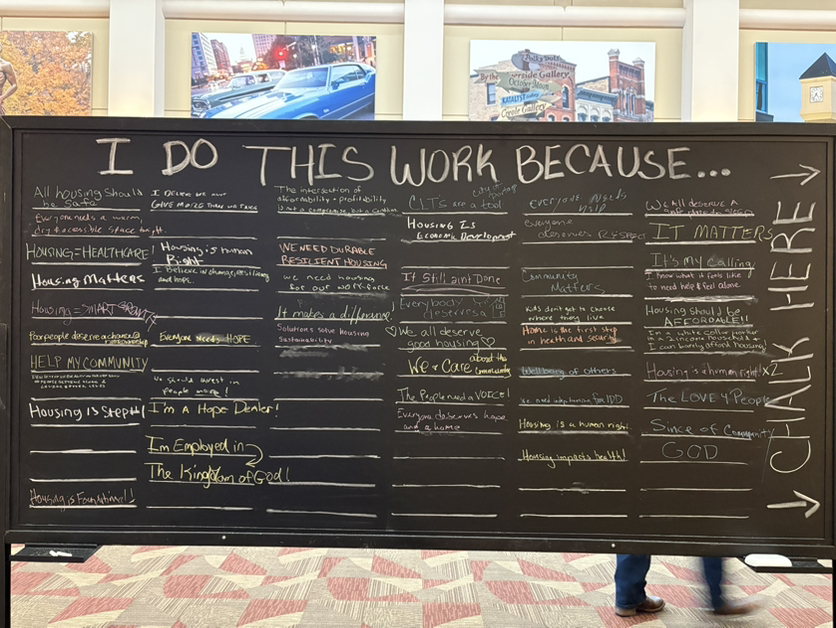 I DO THIS WORK BECAUSE...
All housing should
be safe
Everyone needs a warm,
dry & accessible space
HOUSING = HEALTHCARE!
Housing Matters
Housing = SMART GROWTH
Poor people deserve a chance @
HELP MY COMMUNITY
Housing Is Step #1
Housing is Foundational!
I BELIEVE WE MUST
GIVE MORE THAN WE TAKE
Housing is human
Right
I Believe in change, resiliency
and hope.
Everyone needs HOPE
We should invest in
people more!
I'm A Hope Dealer!
I'm Employed in
The Kingdom of God!
The intersection of
affordability + profitability
is not a compromise, but a
WE NEED DURABLE
RESILIENT HOUSING
we need housing
for our workforce
It makes a difference!
Solutions solve housing
sustainability
CLTs are a tool
HOUSING IS
ECONOMIC Development
It Still aint Done
Everybody
deserves a
We all deserve
good housing
We Care about the
community
The People need a VOICE!
Everyone deserves hope
and a home
everyone needs
help
everyone
deserves RESPECT
Community
Matters
Kids don't get to choose
where they live
HOME is the first step
in health and security
Wellbeing of Others
for IDD
Housing is a human right
Housing impacts health!
We all deserve a
safe place to sleep
IT MATTERS
It's my calling
I know what it feels like
to need help & feel alone
Housing should be
AFFORDABLE!!
I'm a white collar worker
in a 2 income household &
I can barely afford housing!
Housing is #human right! x2
The LOVE 4 People
Since of Community
GOD
CHALK HERE
By the Riverside Gallery
October Moon
KATALYST
Creole Gallery